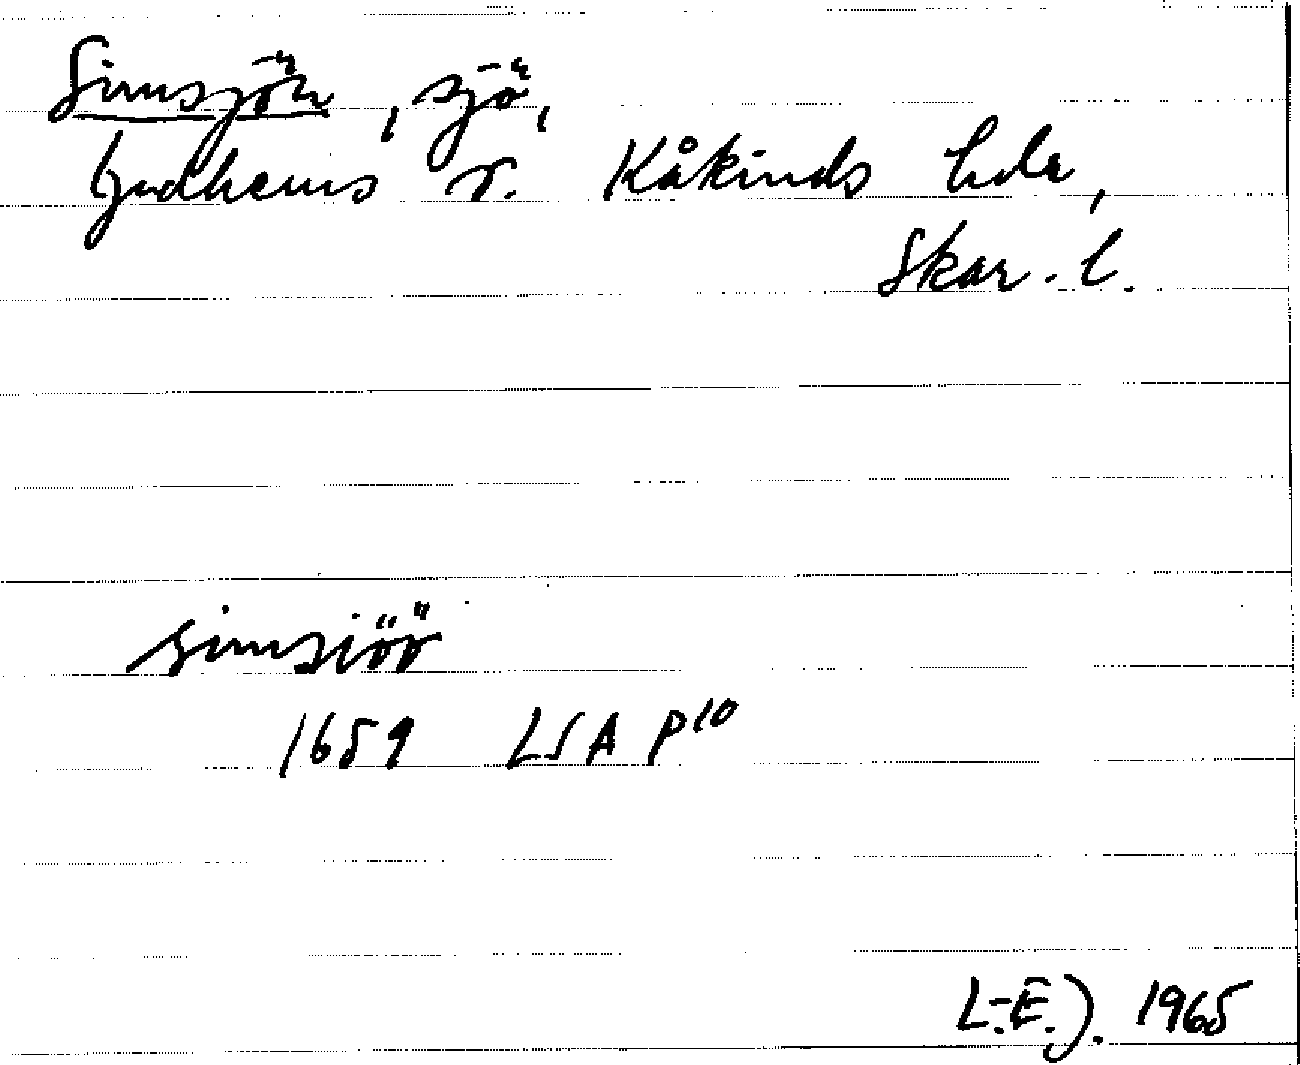 Simsjön, sjö,
Gudhems o. Kåkinds hda,
Skar. l.
simsiöö
1659 LSA P10
L.-E.J. 1965